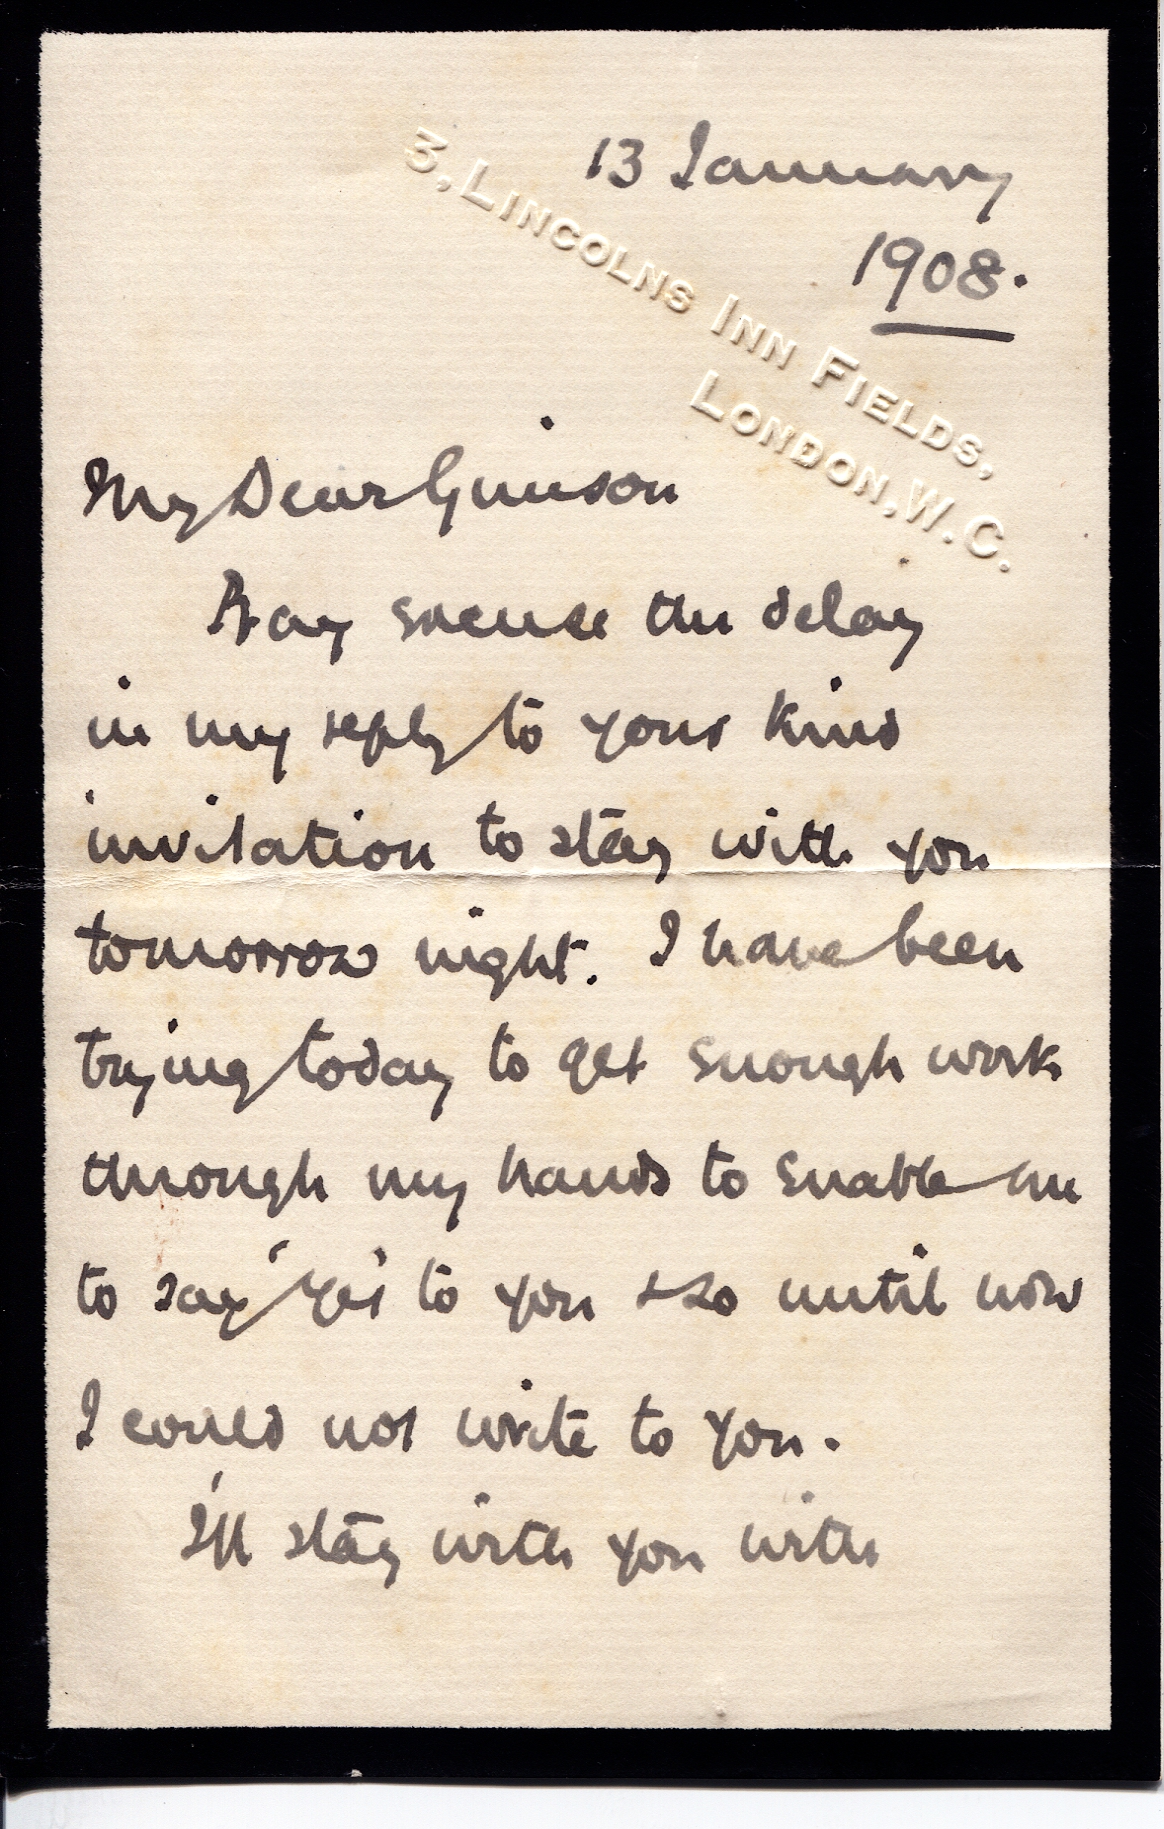 3, LINCOLNS INN FIELDS,
LONDON, W.C.
13 January
1908.
My Dear Gimson
Pray excuse the delay
in my reply to your kind
invitation to stay with you
tomorrow night. I have been
trying today to get enough work
through my hands to enable me
to say 'Yes' to you & so until now
I could not write to you.
I'll stay with you with